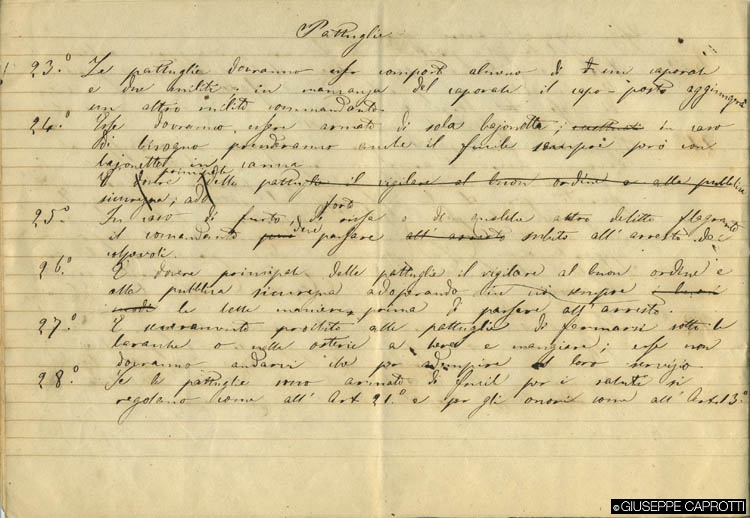 Pattuglie
23.° Le pattuglie dovranno esser composte almeno di un caporale
e due militi; in mancanza del caporale il capo-posto aggiungerà
un altro milite comandante.
24.° Esse dovranno essere armate di sola bajonetta; in caso
di bisogno prenderanno anche il fucile sempre però con
bajonetta in canna
principale
È dovere della pattuglia il vigilare al buon ordine e alla pubblica
sicurezza; ado
forte
25.° In caso di furto, di rissa o di qualche altro delitto flagrante
il comandante deve passare all'arresto subito all'arresto dei
colpevoli.
26.° È dovere principale delle pattuglie il vigilare al buon ordine e
alla pubblica sicurezza adoperando sempre e buoni
modi le belle maniere prima di passare all'arresto.
27.° È severamente proibito alle pattuglie di fermarsi sotto le
baracche o nelle osterie a bere e mangiare; esse non
dovranno andarvi che per adempire al loro servizio.
28.° Se le pattuglie sono armate di fucile per i saluti si
regolano come all'Art. 21.° e per gli onori come all'Art. 13.°
©GIUSEPPE CAPROTTI